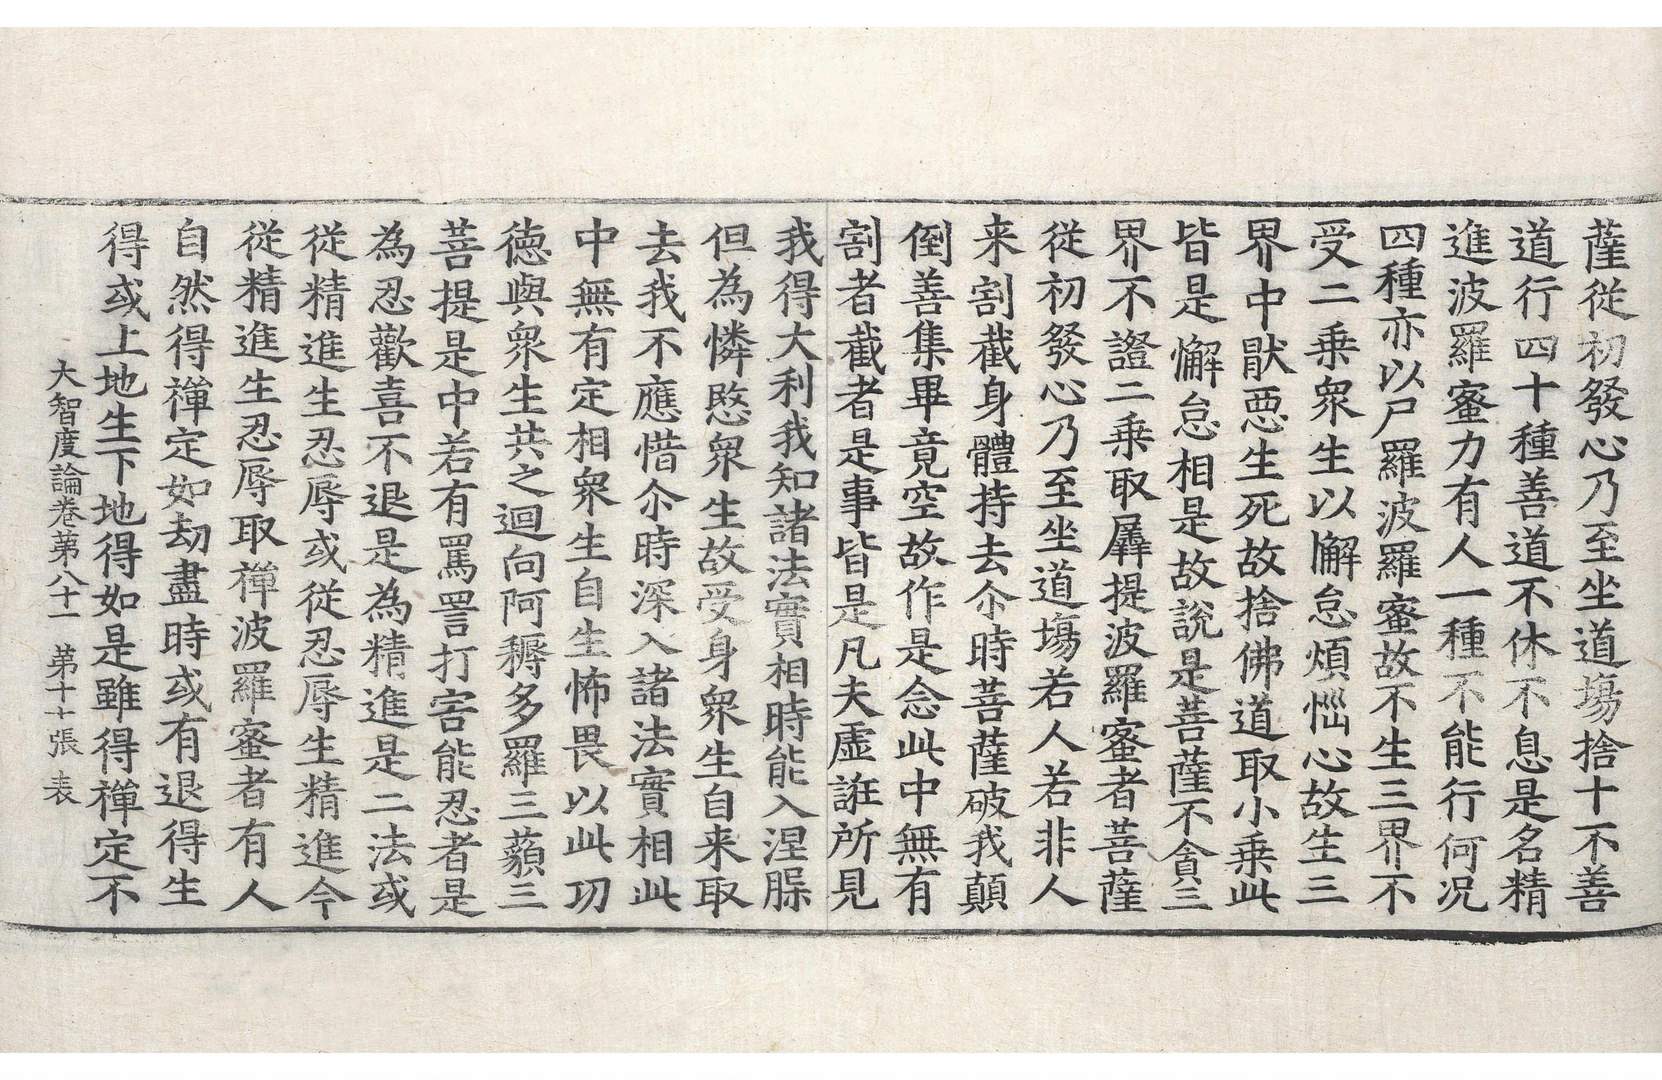 薩從初發心乃至坐道塲捨十不善
道行四十種善道不休不息是名精
進波羅蜜力有人一種不能行何况
四種亦以尸羅波羅蜜故不生三界不
受二乗衆生以懈怠煩惱心故生三
界中猒惡生死故捨佛道取小乗此
皆是懈怠相是故說是菩薩不貪三
界不證二乗取羼提波羅蜜者菩薩
從初發心乃至坐道塲若人若非人
来割截身體持去尒時菩薩破我顛
倒善集畢竟空故作是念此中無有
割者截者是事皆是凡夫虛誑所見
我得大利我知諸法實相時能入涅槃
但為憐愍衆生故受身衆生自来取
去我不應惜尒時深入諸法實相此
中無有定相衆生自生怖畏以此功
德與衆生共之迴向阿耨多羅三藐三
菩提是中若有罵詈打害能忍者是
為忍歡喜不退是為精進是二法或
從精進生忍辱或從忍辱生精進今
從精進生忍辱取禪波羅蜜者有人
自然得禪定如劫盡時或有退得生
得或上地生下地得如是雖得禪定不
大智度論卷第八十一 第十十張 表